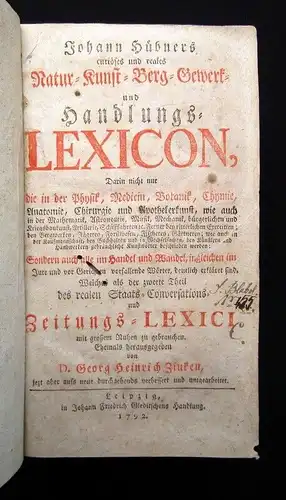 Johann Hübners
curiöses und reales
Natur-Kunst-Berg-Gewerk-
und
Handlungs-
LEXICON,
Darin nicht nur
die in der Physik, Medicin, Botanik, Chymie,
Anatomie, Chirurgie und Apothekerkunst, wie auch
in der Mathematik, Astronomie, Musik, Mechanik, bürgerlichen und
Kriegsbaukunst, Artillerie, Schiffahrt etc. Ferner bey ritterlichen Exercitien;
den Bergwerken, Jägerey, Forstwesen, Fischerey, Gärtnerey; wie auch in
der Kaufmannschaft, bey Buchhalten und in Wechselsachen, bey Künstlern und
Handwerkern gebräuchliche Kunstwörter beschrieben werden;
Sondern auch alle im Handel und Wandel, ingleichen im
Jure und vor Gerichten vorfallende Wörter, deutlich erklärt sind,
Welches als der zweyte Theil
des realen Staats-Conversations-
und
Zeitungs-LEXICI
mit großem Nutzen zu gebrauchen.
Ehemals herausgegeben
von
D. Georg Heinrich Zinken,
jetzt aber aufs neue durchgehends verbessert und umgearbeitet.
Leipzig,
in Johann Friedrich Gleditschens Handlung.
1792.